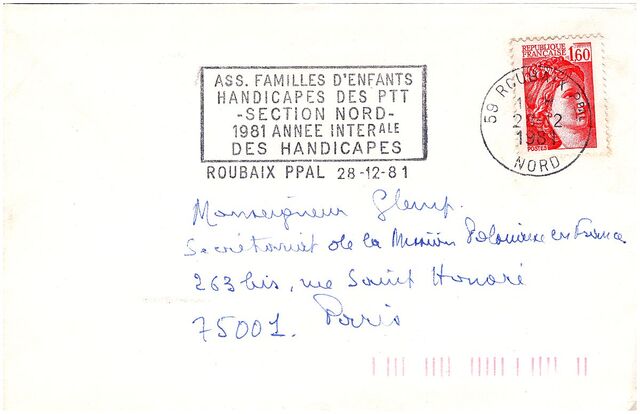 ASS. FAMILLES D'ENFANTS
HANDICAPES DES PTT
-SECTION NORD-
1981 ANNEE INTERALE
DES HANDICAPES
ROUBAIX PPAL 28-12-81
REPUBLIQUE
FRANCAISE
1,60
POSTES
59 ROUBAIX PPAL
NORD
Monseigneur Glemp.
Secrétariat de la Mission Polonaise en France
263 bis, rue Saint Honoré
75001. Paris